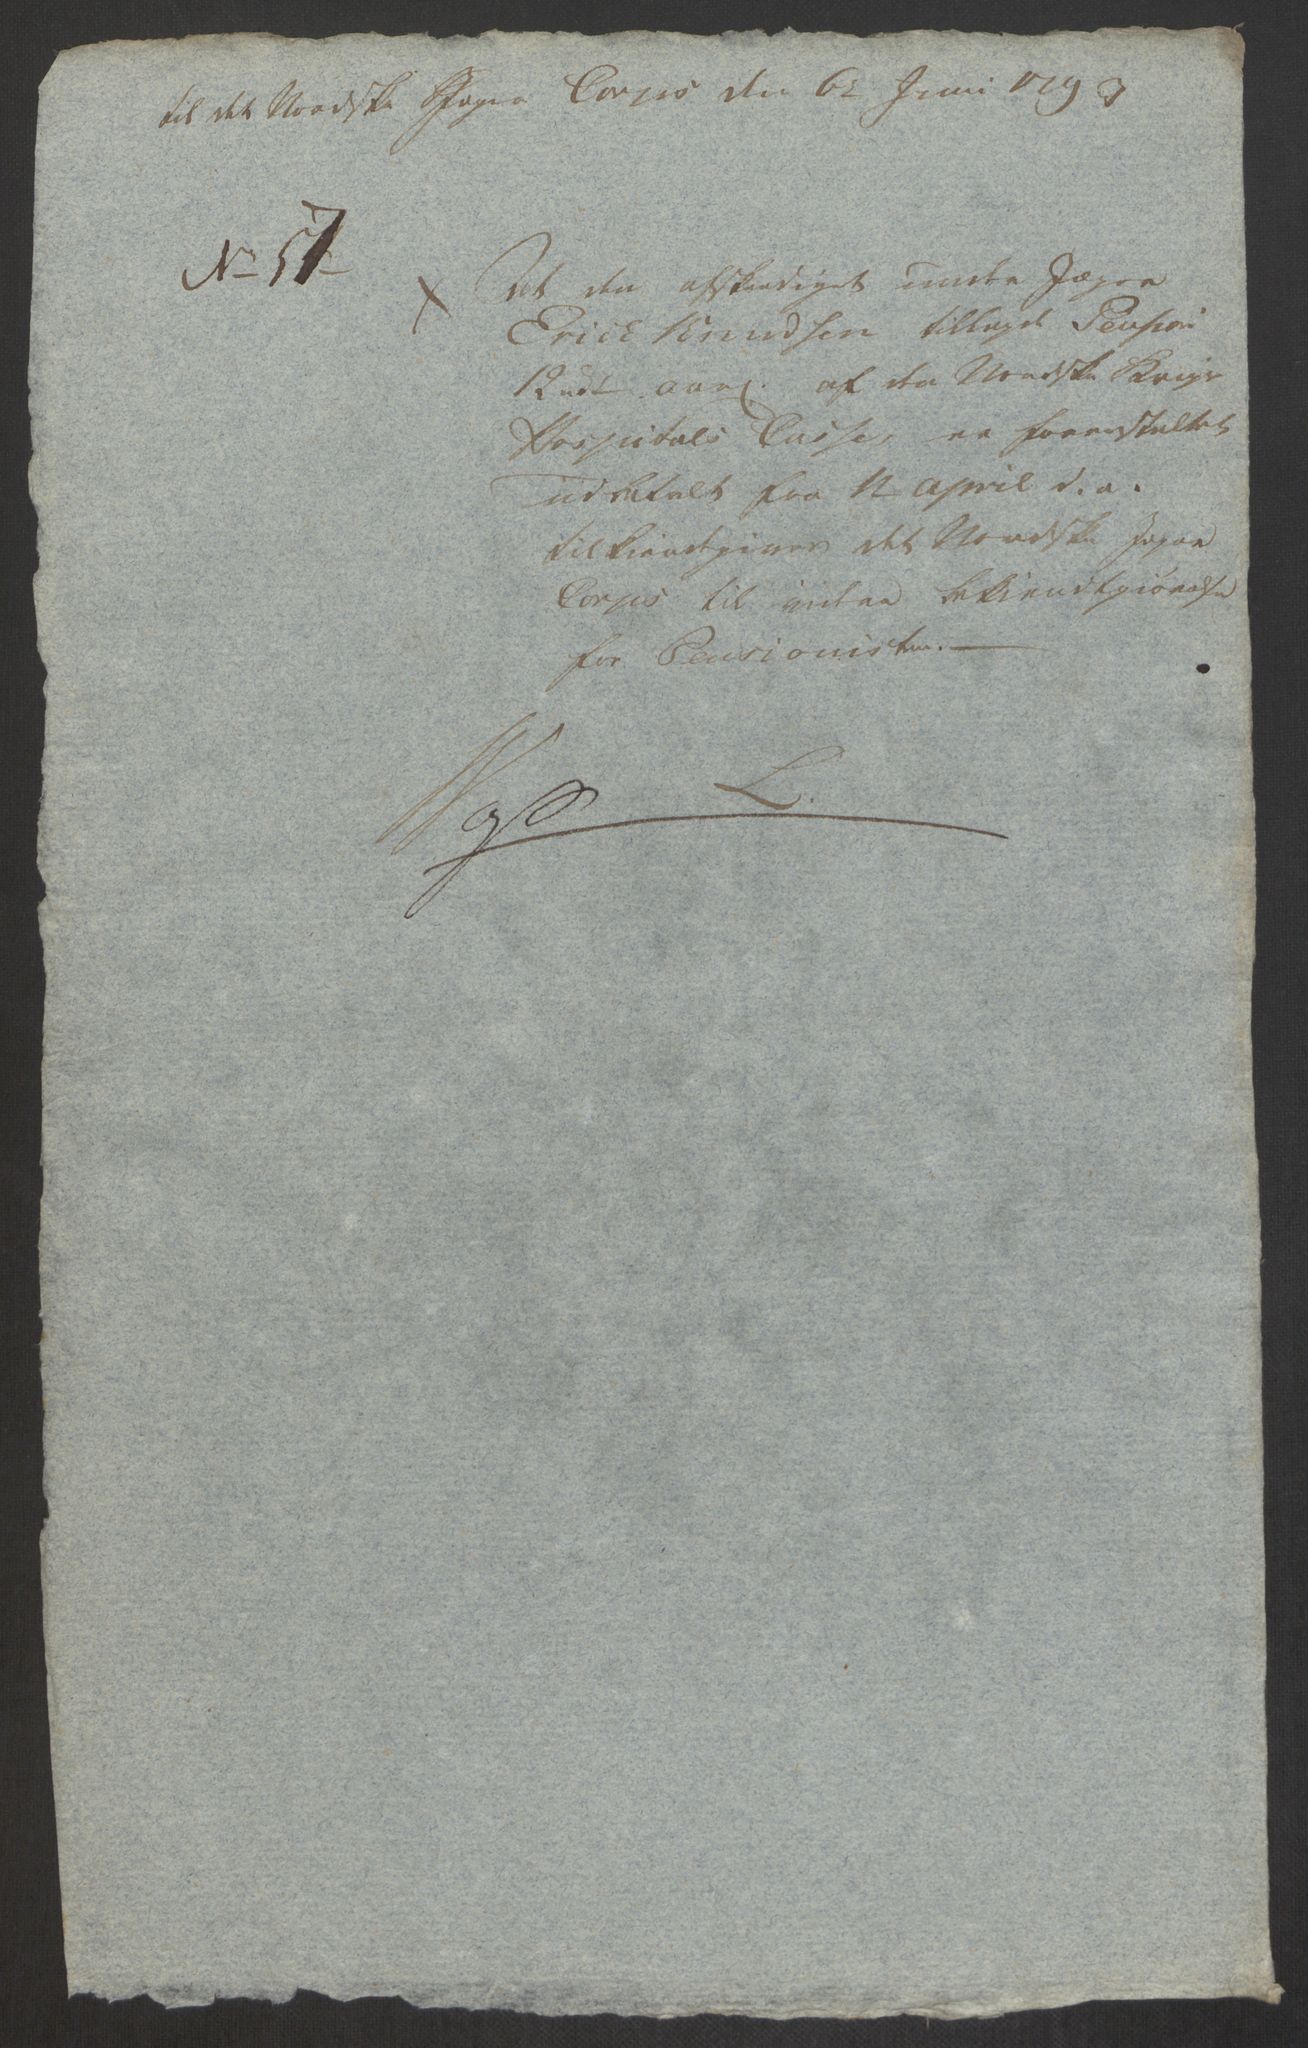 til det Nordske Jæger Corps den 6te Juni 1793
No 57
x Det den afskediget under Jæger
Erich Knudsen tillagde Pension
12 rdl aarl. af den Nordske Krigs
Hospitals Casse, er foranstaltet
udbetalt fra 1te April d. a.
tilkiendegives det Nordske Jæger
Corps til videre bekiendtgiørelse
for Pensionisten.
L.